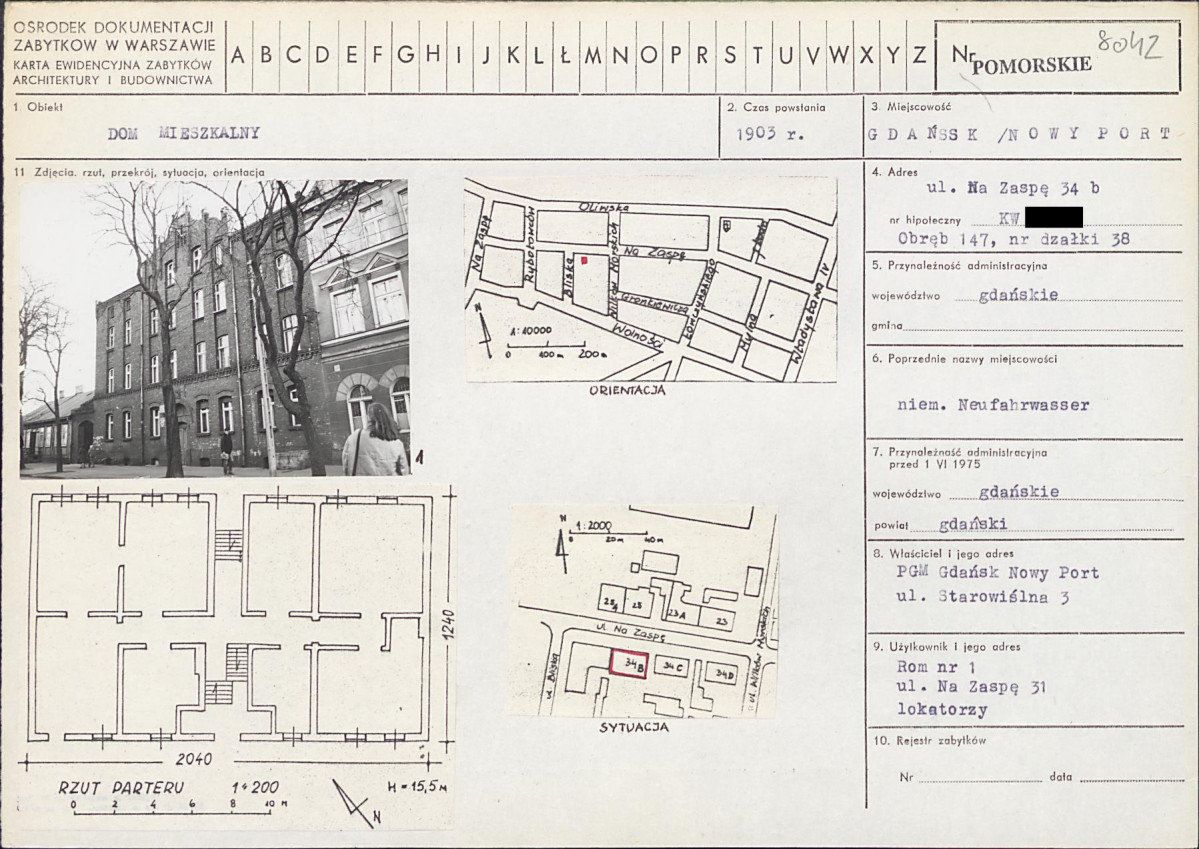 OSRODEK DOKUMENTACJI
ZABYTKÓW W WARSZAWIE
KARTA EWIDENCYJNA ZABYTKÓW
ARCHITEKTURY I BUDOWNICTWA
A B C D E F G H I J K L Ł M N O P R S T U V W X Y Z
Nr POMORSKIE 8042
1. Obiekt
DOM MIESZKALNY
2. Czas powstania
1903 r.
3. Miejscowość
GDAŃSSK /NOWY PORT
11 Zdjęcia. rzut, przekrój, sytuacja, orientacja
1
4. Adres
ul. Na Zaspę 34 b
nr hipoteczny KW
Obręb 147, nr dzałki 38
5. Przynależność administracyjna
województwo gdańskie
gmina
6. Poprzednie nazwy miejscowości
niem. Neufahrwasser
7. Przynależność administracyjna
przed 1 VI 1975
województwo gdańskie
powiat gdański
8. Właściciel i jego adres
PGM Gdańsk Nowy Port
ul. Starowiślna 3
9. Użytkownik i jego adres
Rom nr 1
ul. Na Zaspę 31
lokatorzy
10. Rejestr zabytków
Nr data
Oliwska
Na Zaspę
Rybołowców
Bliska
Wilków Morskich
Na Zaspę
Wolności
Władysława IV
N
1:10000
0 100 m 200 m
ORIENTACJA
N
1:2000
0 20 m 40 m
25A 25 23A 23
ul. Na Zaspę
34B 34C 34D
ul. Bliska
ul. Wilków Morskich
SYTUACJA
1240
2040
RZUT PARTERU 1:200
0 2 4 6 8 10 m
N
H = 15,5 M